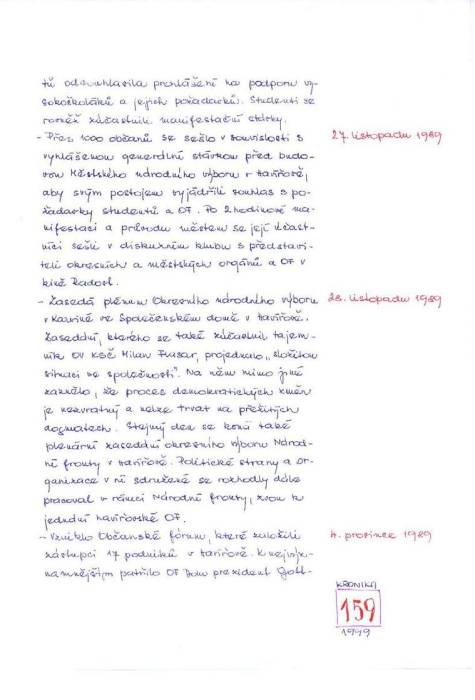 tů odsouhlasila prohlášení na podporu vy-
sokoškoláků a jejich požadavků. Studenti se
rovněž zúčastnili manifestační stávky.
- Přes 1000 občanů se sešlo v souvislosti s
27. listopadu 1989
vyhlášenou generální stávkou před budo-
vou Městského národního výboru v Havířově,
aby svým postojem vyjádřili souhlas s po-
žadavky studentů a OF. Po 2 hodinové ma-
nifestaci a průvodu městem se její účast-
níci sešli v diskuzním klubu s představi-
teli okresních a městských orgánů a OF v
kině Radost.
- Zasedá plénum Okresního národního výboru
28. listopadu 1989
v Karviné ve Společenském domě v Havířově.
Zasedání, kterého se také zúčastnil tajem-
ník OV KSČ Milan, projednalo „složitou
situaci ve společnosti". Na něm mimo jiné
zaznělo, že proces demokratických změn
je nezvratný a nelze trvat na přežitých
dogmatech. Stejný den se koná také
plenární zasedání okresního výboru Národ-
ní fronty v Havířově. Politické strany a or-
ganizace v ní sdružené se rozhodly dále
pracovat v rámci Národní fronty, zvou k
jednání havířovské OF.
- Vzniklo Občanské fórum, které založili
4. prosince 1989
zástupci 17 podniků v Havířově. K nejvýz-
namnějším patřilo OF Dolu prezident Gott-
KRONIKA
159
1999